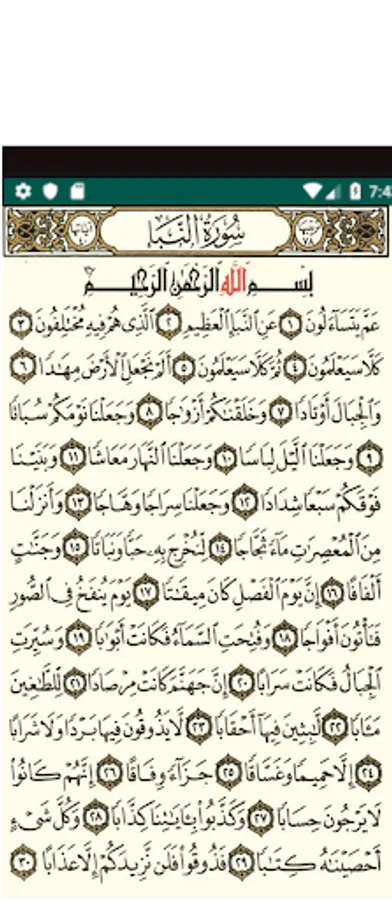 7:4
سُورَةُ النَّبَإِ
ترتيبها ٧٨
آياتها ٤٠
بِسْمِ اللَّهِ الرَّحْمَٰنِ الرَّحِيمِ
عَمَّ يَتَسَاءَلُونَ ١ عَنِ النَّبَإِ الْعَظِيمِ ٢ الَّذِي هُمْ فِيهِ مُخْتَلِفُونَ ٣
كَلَّا سَيَعْلَمُونَ ٤ ثُمَّ كَلَّا سَيَعْلَمُونَ ٥ أَلَمْ نَجْعَلِ الْأَرْضَ مِهَٰدًا ٦
وَالْجِبَالَ أَوْتَادًا ٧ وَخَلَقْنَٰكُمْ أَزْوَٰجًا ٨ وَجَعَلْنَا نَوْمَكُمْ سُبَاتًا
٩ وَجَعَلْنَا الَّيْلَ لِبَاسًا ١٠ وَجَعَلْنَا النَّهَارَ مَعَاشًا ١١ وَبَنَيْنَا
فَوْقَكُمْ سَبْعًا شِدَادًا ١٢ وَجَعَلْنَا سِرَاجًا وَهَّاجًا ١٣ وَأَنزَلْنَا
مِنَ الْمُعْصِرَٰتِ مَاءً ثَجَّاجًا ١٤ لِّنُخْرِجَ بِهِ حَبًّا وَنَبَاتًا ١٥ وَجَنَّٰتٍ
أَلْفَافًا ١٦ إِنَّ يَوْمَ الْفَصْلِ كَانَ مِيقَٰتًا ١٧ يَوْمَ يُنفَخُ فِي الصُّورِ
فَتَأْتُونَ أَفْوَاجًا ١٨ وَفُتِحَتِ السَّمَاءُ فَكَانَتْ أَبْوَٰبًا ١٩ وَسُيِّرَتِ
الْجِبَالُ فَكَانَتْ سَرَابًا ٢٠ إِنَّ جَهَنَّمَ كَانَتْ مِرْصَادًا ٢١ لِّلطَّٰغِينَ
مَـَٔابًا ٢٢ لَّٰبِثِينَ فِيهَا أَحْقَابًا ٢٣ لَّا يَذُوقُونَ فِيهَا بَرْدًا وَلَا شَرَابًا
٢٤ إِلَّا حَمِيمًا وَغَسَّاقًا ٢٥ جَزَاءً وِفَاقًا ٢٦ إِنَّهُمْ كَانُوا
لَا يَرْجُونَ حِسَابًا ٢٧ وَكَذَّبُوا بِـَٔايَٰتِنَا كِذَّابًا ٢٨ وَكُلَّ شَيْءٍ
أَحْصَيْنَٰهُ كِتَٰبًا ٢٩ فَذُوقُوا فَلَن نَّزِيدَكُمْ إِلَّا عَذَابًا ٣٠